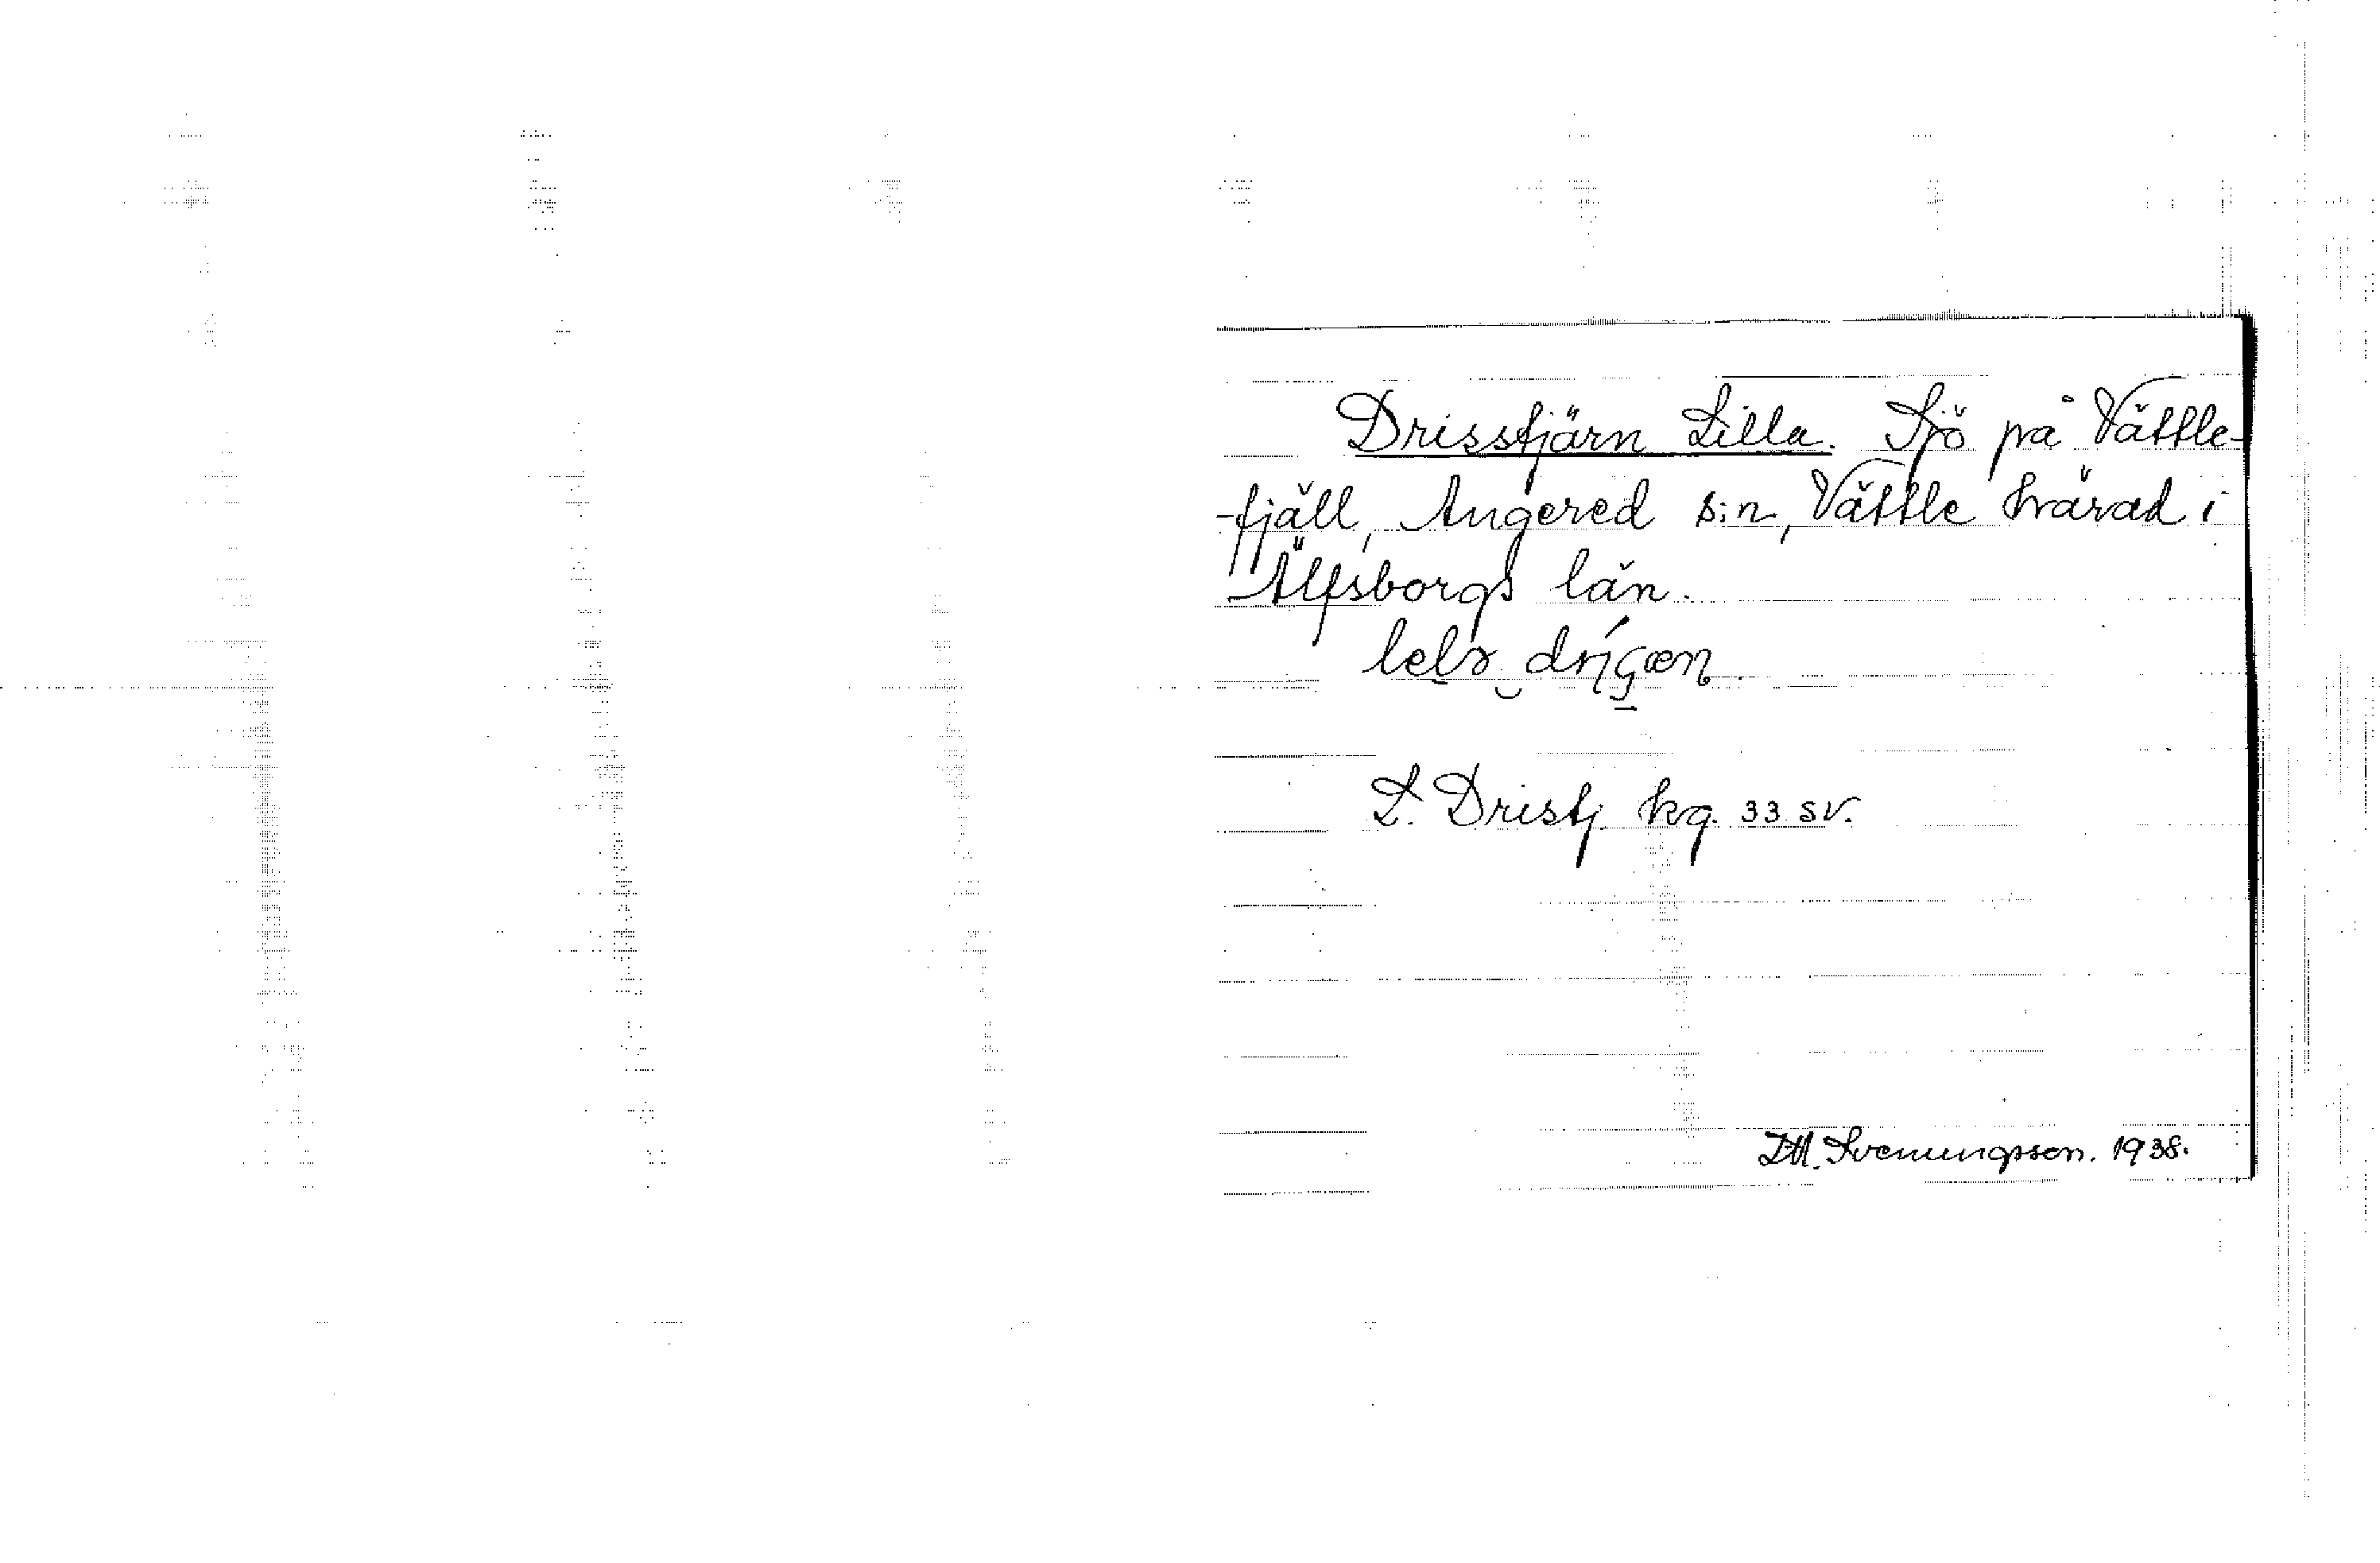 Drisstjärn Lilla. Sjö på Vättle-
-fjäll, Angered s:n, Vättle härad i
Älfsborgs län.
L. Dristj. kg. 33 SV.
D.M. Svenungsson. 1938.